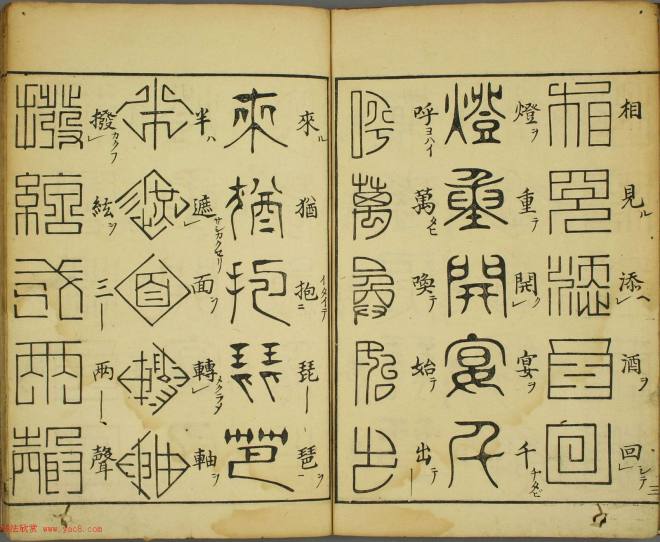 相見ル添ヘ酒ヲ回シテ
燈ヲ重テ開ク宴ヲ千チタビ
呼ヨハイ萬タヒ喚テ始テ出テ
來ル猶抱イタイテニ琵琶ヲ
半ハ遮サシカクセリ面ヲ轉メクラシ軸ヲ
撥カクフ絃ヲ三両聲
www.yac8.com